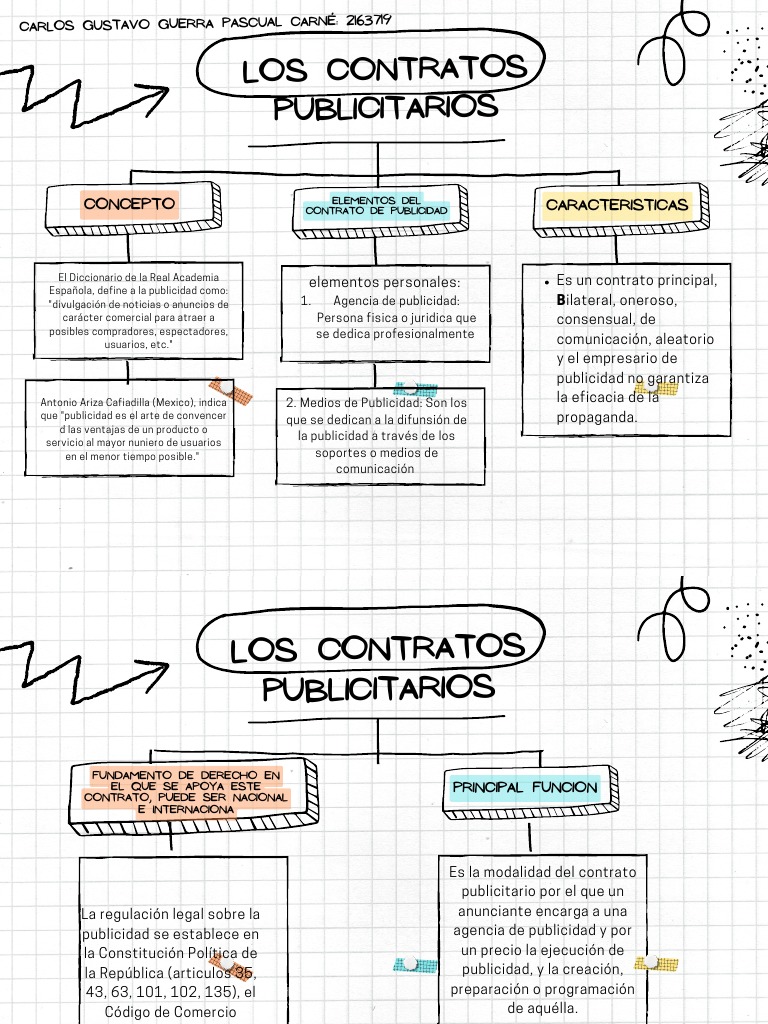 CARLOS GUSTAVO GUERRA PASCUAL CARNÉ: 2163719
LOS CONTRATOS
PUBLICITARIOS
CONCEPTO
El Diccionario de la Real Academia
Española, define a la publicidad como:
"divulgación de noticias o anuncios de
carácter comercial para atraer a
posibles compradores, espectadores,
usuarios, etc."
Antonio Ariza Cafiadilla (Mexico), indica
que "publicidad es el arte de convencer
d las ventajas de un producto o
servicio al mayor nuniero de usuarios
en el menor tiempo posible."
ELEMENTOS DEL
CONTRATO DE PUBLICIDAD
elementos personales:
1. Agencia de publicidad:
Persona fisica o juridica que
se dedica profesionalmente
2. Medios de Publicidad: Son los
que se dedican a la difunsión de
la publicidad a través de los
soportes o medios de
comunicación
CARACTERISTICAS
• Es un contrato principal,
Bilateral, oneroso,
consensual, de
comunicación, aleatorio
y el empresario de
publicidad no garantiza
la eficacia de la
propaganda.
LOS CONTRATOS
PUBLICITARIOS
FUNDAMENTO DE DERECHO EN
EL QUE SE APOYA ESTE
CONTRATO, PUEDE SER NACIONAL
E INTERNACIONA
La regulación legal sobre la
publicidad se establece en
la Constitución Política de
la República (articulos 35,
43, 63, 101, 102, 135), el
Código de Comercio
PRINCIPAL FUNCION
Es la modalidad del contrato
publicitario por el que un
anunciante encarga a una
agencia de publicidad y por
un precio la ejecución de
publicidad, y la creación,
preparación o programación
de aquélla.